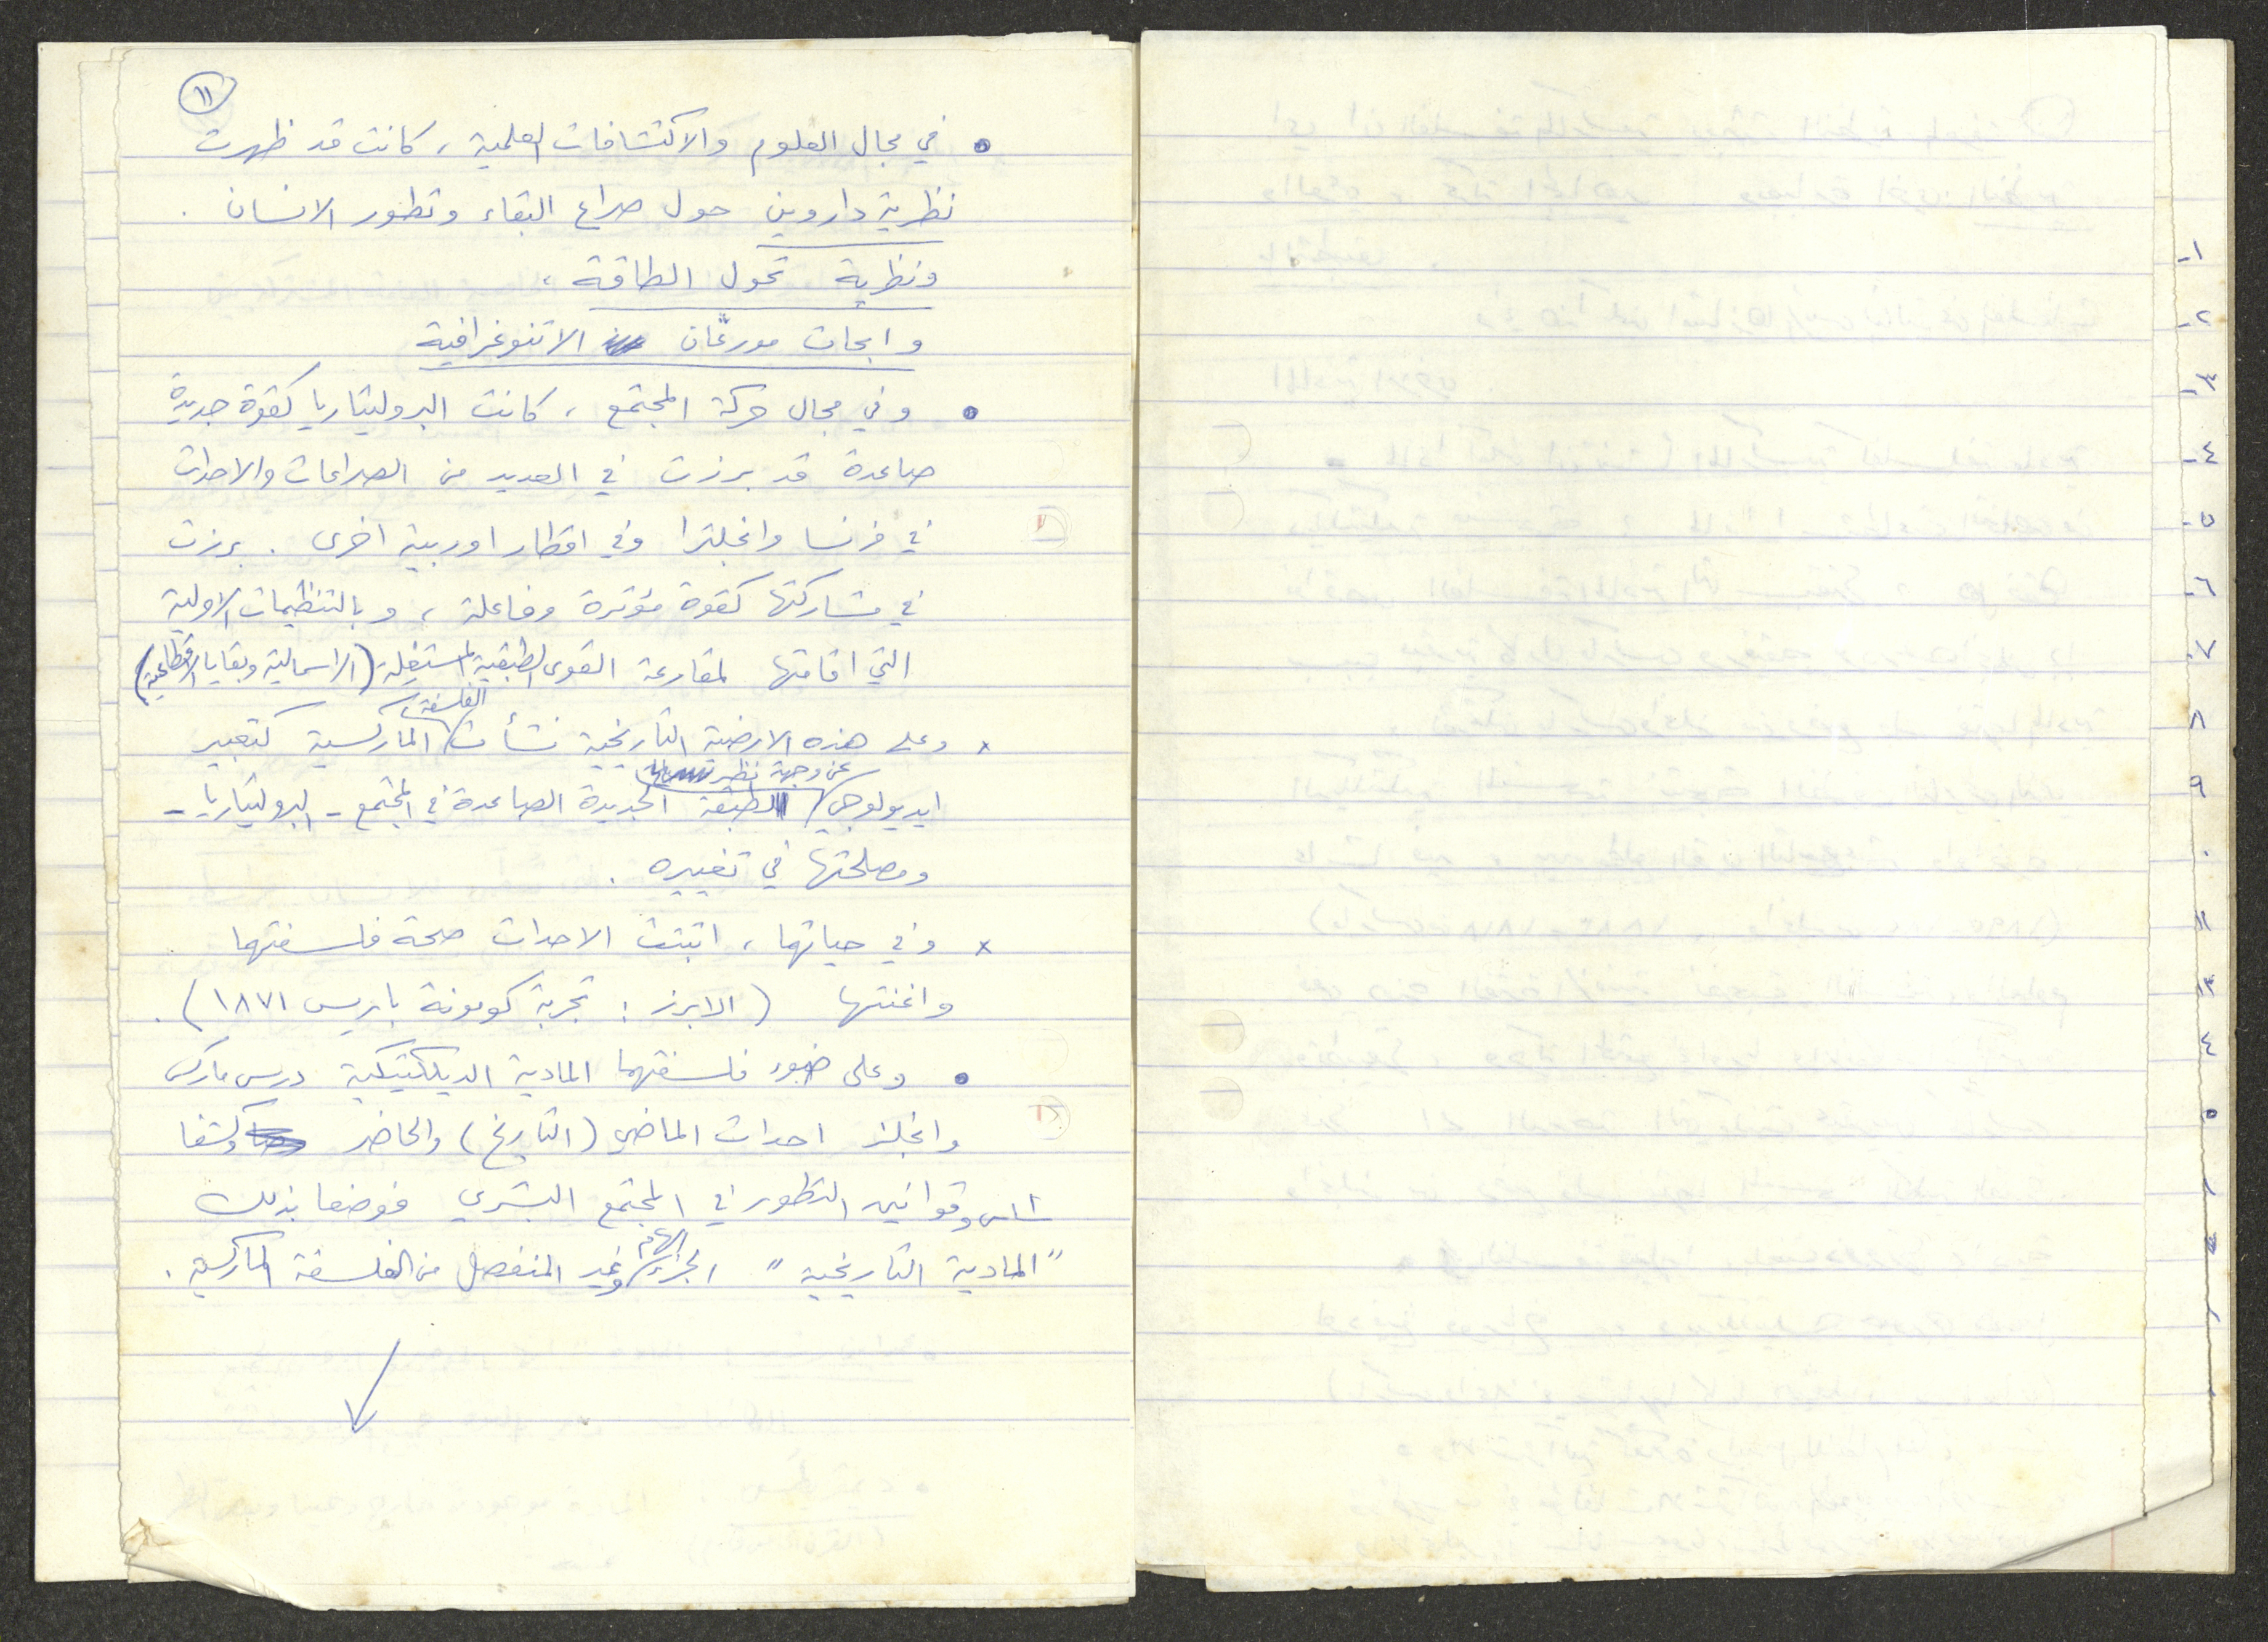 ١١
• في مجال العلوم والاكتشافات العلمية، كانت قد ظهرت
نظرية داروين حول صراع البقاء وتطور الانسان.
ونظرية تحول الطاقة،
وابحاث مورغان الاتنوغرافية
• وفي مجال حركة المجتمع، كانت البروليتاريا كقوة جديدة
صاعدة قد برزت في العديد من الصراعات والاحداث
في فرنسا وانجلترا وفي اقطار اوربية اخرى. برزت
في مشاركتها كقوة مؤثرة وفاعلة، وبالتنظيمات الاولية
التي اقامتها لمقارعة القوى الطبقية المستغلة (الراسمالية وبقايا الاقطاعية)
× وعلى هذه الارضية التاريخية نشأت الفلسفة الماركسية كتعبير
ايديولوجي عن وجهة نظر الطبقة الجديدة الصاعدة في المجتمع - البروليتاريا -
ومصلحتها في تغييره.
× وفي حياتهما، اثبتت الاحداث صحة فلسفتهما
واغنتها (الابرز: تجربة كومونة باريس ١٨٧١).
• وعلى ضوء فلسفتهما المادية الديلكتيكية درس ماركس
وانجلز احداث الماضي (التاريخ) والحاضر وكشفا
اسس وقوانين التطور في المجتمع البشري فوضعا بذلك
"المادية التاريخية" الجزء الهام وغير المنفصل من الفلسفة الماركسية.
١-
٢-
٣-
٤-
٥-
٦-
٧-
٨
٩
٠
١١
١٣
٤
٥